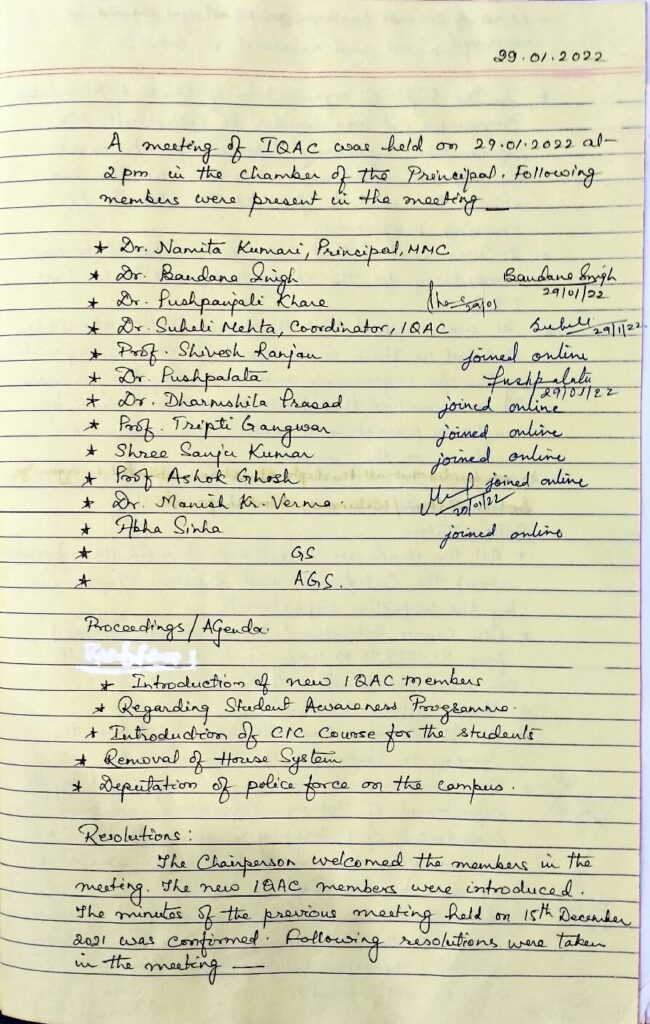 29.01.2022
A meeting of IQAC was held on 29.01.2022 at
2 pm in the chamber of the Principal. Following
members were present in the meeting —
* Dr. Namita Kumari, Principal, MMC
* Dr. Bandana Singh Bandana Singh 29/01/22
* Dr. Pushpanjali Khare 29/01
* Dr. Suheli Mehta, Coordinator, IQAC Suheli 29/1/22
* Prof. Shivesh Ranjan joined online
* Dr. Pushpalata Pushpalata 29/01/22
* Dr. Dharmshila Prasad joined online
* Prof. Tripti Gangwar joined online
* Shree Sanju Kumar joined online
* Prof Ashok Ghosh joined online
* Dr. Manish Kr. Verma. 29/01/22
* Abha Sinha joined online
* GS
* AGS.
Proceedings/Agenda
* Introduction of new IQAC members
* Regarding Student Awareness Programme.
* Introduction of CIC Course for the students
* Removal of House System
* Deputation of police force on the campus.
Resolutions:
The Chairperson welcomed the members in the
meeting. The new IQAC members were introduced.
The minutes of the previous meeting held on 15th December
2021 was confirmed. Following resolutions were taken
in the meeting —